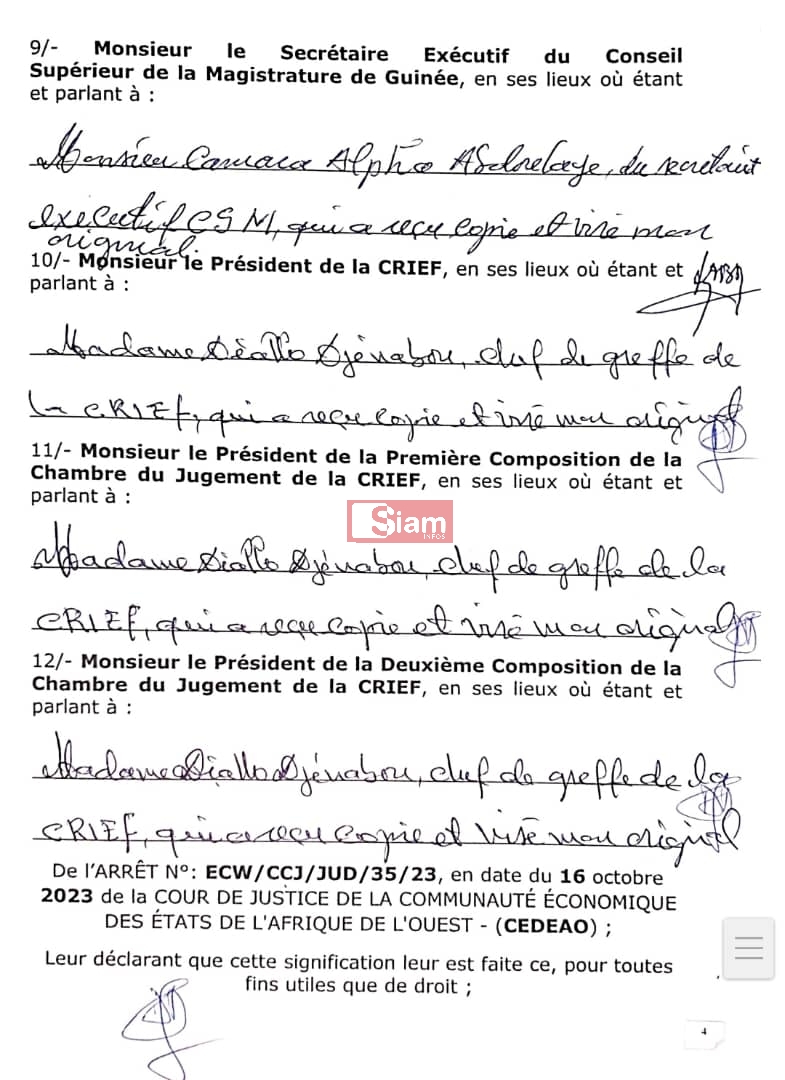 9/- Monsieur le Secrétaire Exécutif du Conseil
Supérieur de la Magistrature de Guinée, en ses lieux où étant
et parlant à :
Monsieur Camara Alpha , du secrétaire
exécutif CSM, qui a reçu copie et visé mon
original.
10/- Monsieur le Président de la CRIEF, en ses lieux où étant et
parlant à :
Madame Diallo Djénabou, chef de greffe de
la CRIEF, qui a reçu copie et visé mon original
11/- Monsieur le Président de la Première Composition de la
Chambre du Jugement de la CRIEF, en ses lieux où étant et
parlant à :
Siam
INFOS
Madame Diallo Djénabou, chef de greffe de la
CRIEF, qui a reçu copie et visé mon original
12/- Monsieur le Président de la Deuxième Composition de la
Chambre du Jugement de la CRIEF, en ses lieux où étant et
parlant à :
Madame Diallo Djénabou, chef de greffe de la
CRIEF, qui a reçu copie et visé mon original
De l'ARRÊT N°: ECW/CCJ/JUD/35/23, en date du 16 octobre
2023 de la COUR DE JUSTICE DE LA COMMUNAUTÉ ÉCONOMIQUE
DES ÉTATS DE L'AFRIQUE DE L'OUEST - (CEDEAO) ;
Leur déclarant que cette signification leur est faite ce, pour toutes
fins utiles que de droit ;
4